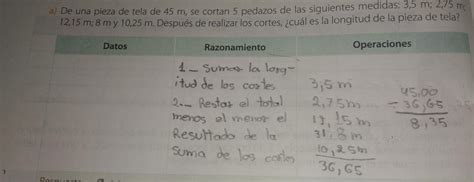 a) De una pieza de tela de 45 m, se cortan 5 pedazos de las siguientes medidas: 3,5 m; 2,75 m;
12,15 m; 8 m y 10,25 m. Después de realizar los cortes, ¿cuál es la longitud de la pieza de tela?
Datos Razonamiento Operaciones
1_ Sumar la long-
itud de los cortes
2._ Restar el total
menos el menor el
Resultado de la
suma de los cortes
3,5 m
2,75 m
15 m
8 m
10,25 m
36,65
45,00
- 36,65
8,35
1